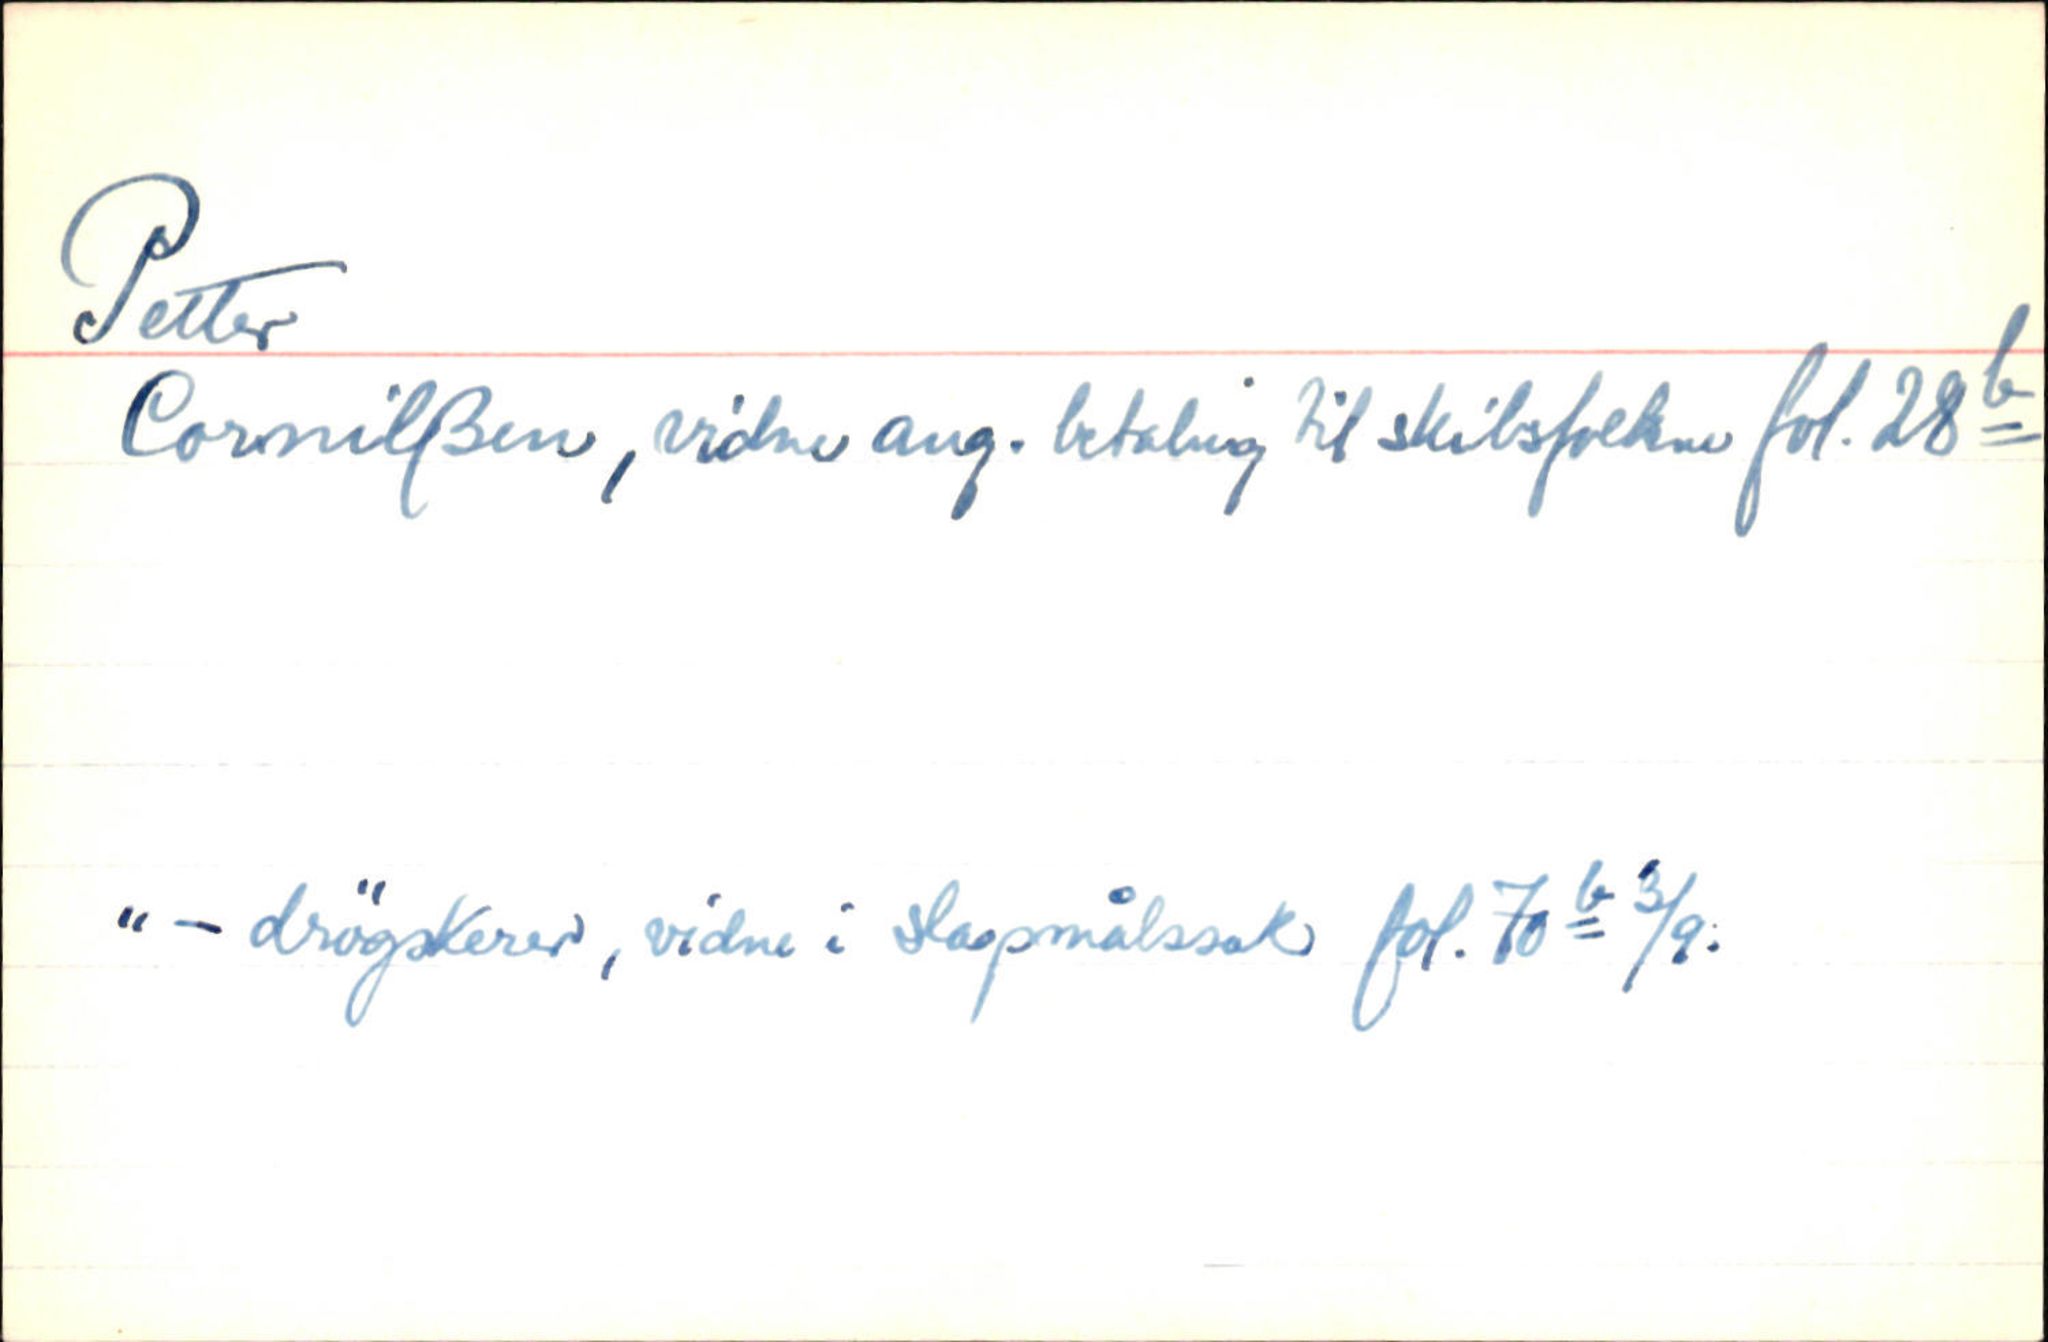 Petter
Cornilßen, vidne ang. betaling til skibsfolkene fol. 28 b
"- drögskerer, vidne i slagsmålssak fol. 70 b 3/9.